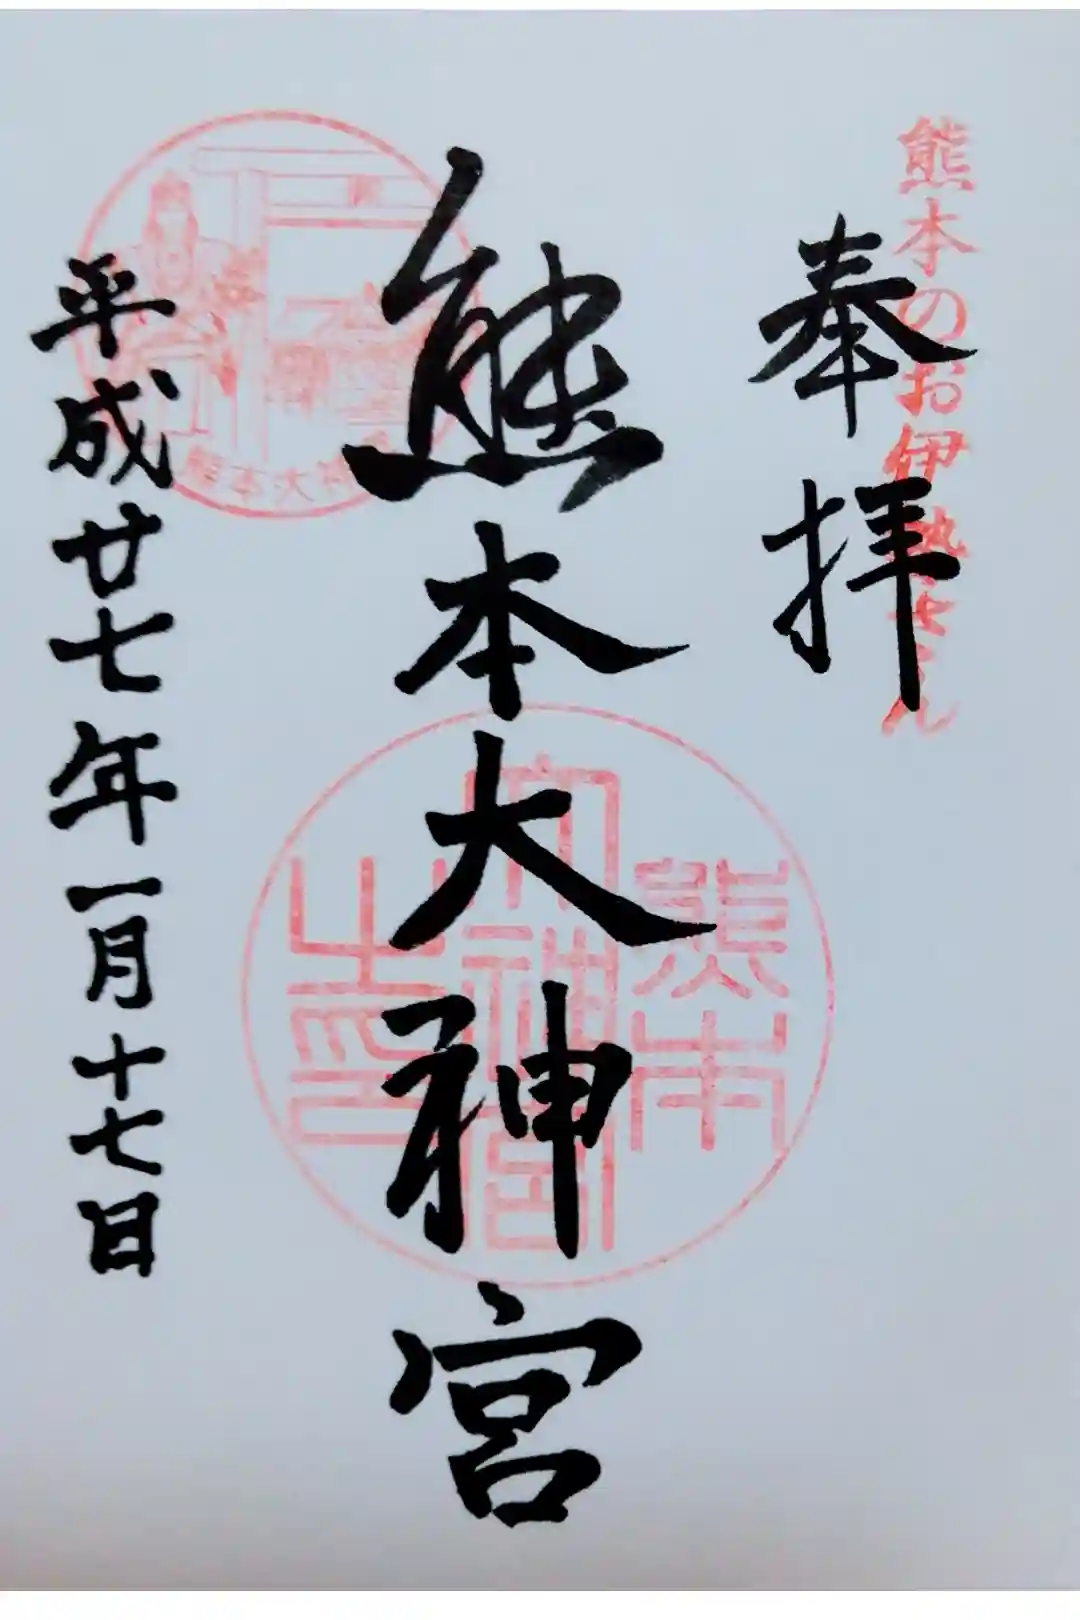 熊本のお伊勢さん
奉拝
熊本大神宮
熊本
大神宮
之印
熊本大神
平成廿七年一月十七日